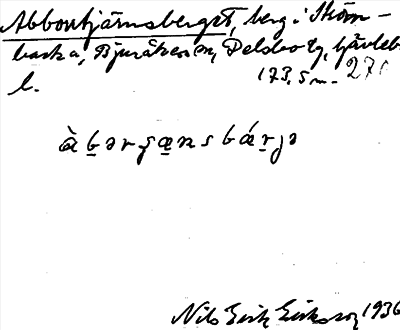 Abbortjärnsberget, berg i Ström-
backa, Bjuråkers sn, Delsbo tg, Gävleb.
l. 173,5 m. 270
àbərʂænsbárjə
Nils Erik Eriksson 1936